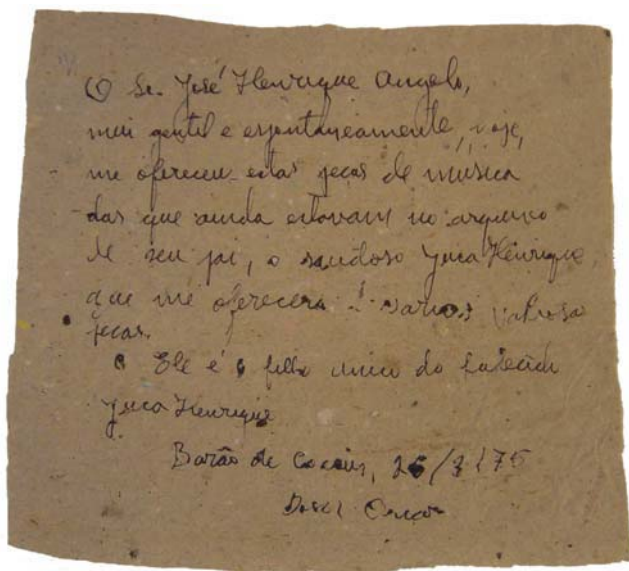 O Sr. José Henrique Angelo,
mui gentil e espontaneamente, hoje,
me ofereceu estas peças de musica
das que ainda estavam no arquivo
de seu pai, o saudoso Juca Henrique
que me oferecera varias valiosas
peças.
Ele é o filho unico do falecido
Juca Henrique
Barão de Cocais, 26/3/75